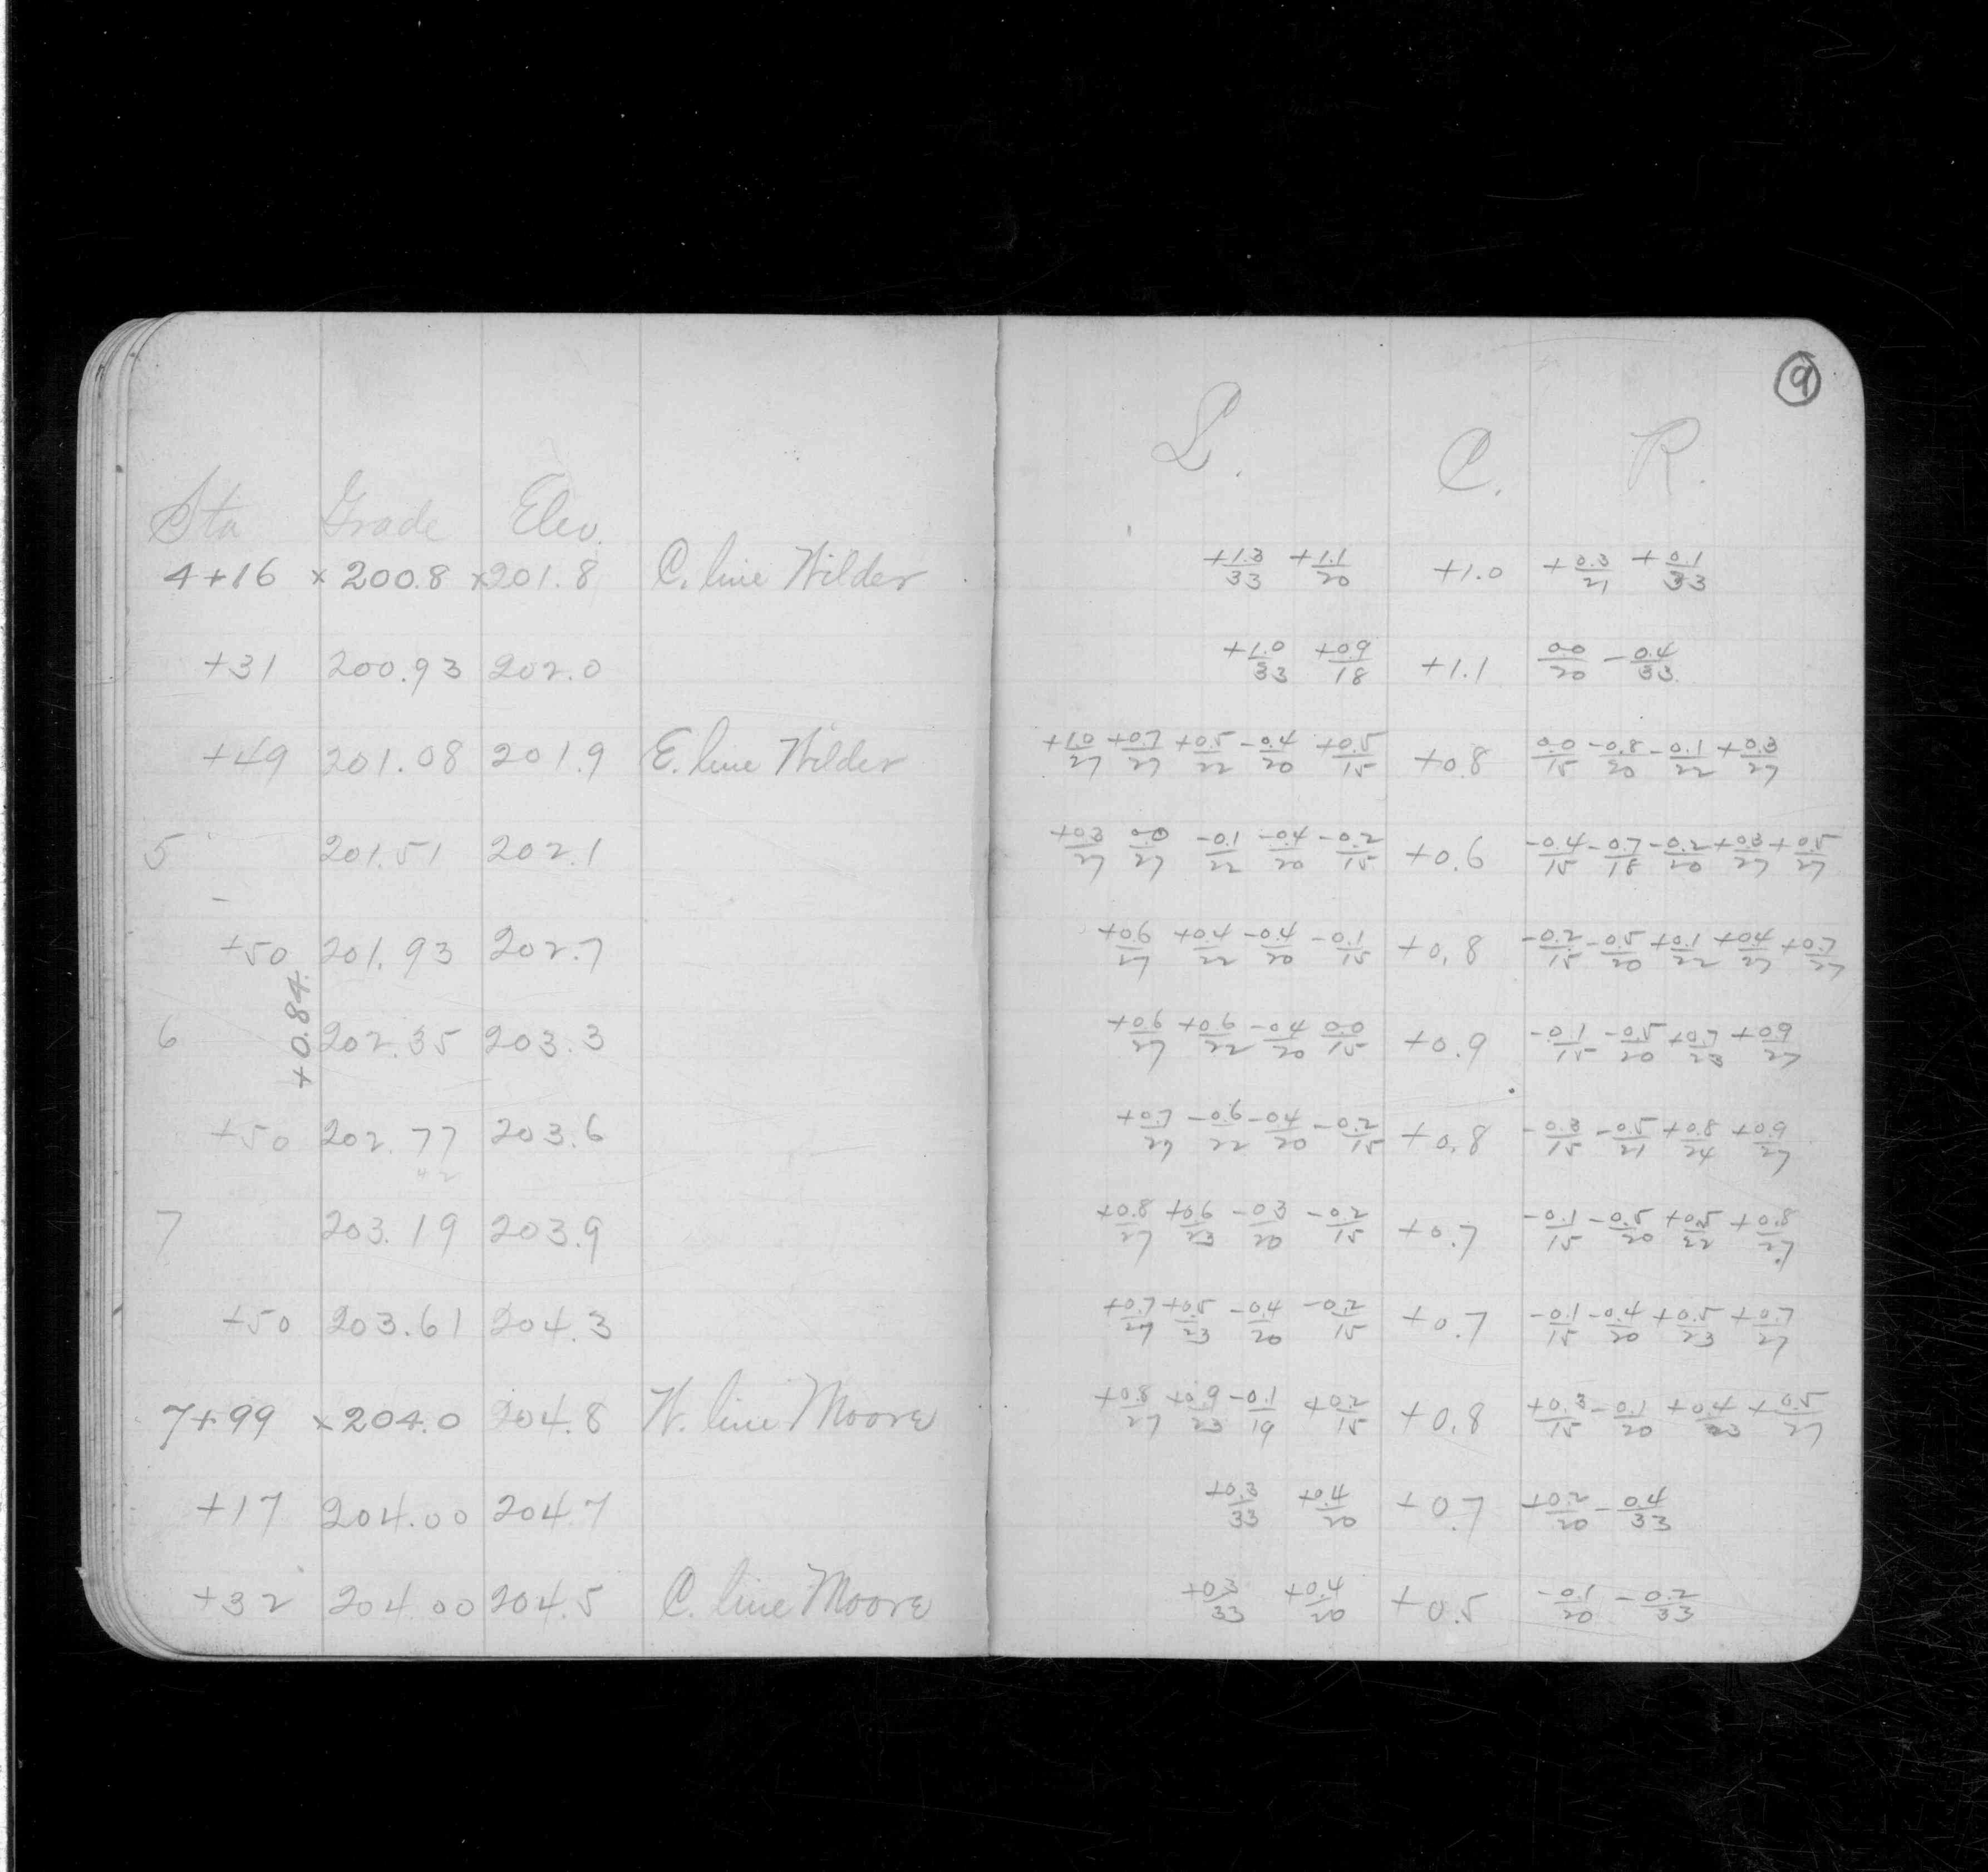 9
L. C. R.
Sta Grade Elev.
4+16 x 200.8 x 201.8 C. line Wilder +1.3/33 +1.1/20 +1.0 +0.3/21 +0.1/33
+31 200.93 202.0 +1.0/33 +0.9/18 +1.1 0.0/20 -0.4/33
+49 201.08 201.9 E. line Wilder +1.0/27 +0.7/27 +0.5/22 -0.4/20 +0.5/15 +0.8 0.0/15 -0.8/20 -0.1/22 +0.3/27
5 201.51 202.1 +0.3/27 0.0/27 -0.1/22 -0.4/20 -0.2/15 +0.6 -0.4/15 -0.7/18 -0.2/20 +0.3/27 +0.5/27
+50 201.93 202.7 +0.6/27 +0.4/22 -0.4/20 -0.1/15 +0.8 -0.2/15 -0.5/20 +0.1/22 +0.4/27 +0.7/27
+0.84
6 202.35 203.3 +0.6/27 +0.6/22 -0.4/20 0.0/15 +0.9 -0.1/15 -0.5/20 +0.7/23 +0.9/27
+50 202.77 203.6 +0.7/27 -0.6/22 -0.4/20 -0.2/15 +0.8 -0.3/15 -0.5/21 +0.8/24 +0.9/27
42
7 203.19 203.9 +0.8/27 +0.6/23 -0.3/20 -0.2/15 +0.7 -0.1/15 -0.5/20 +0.5/22 +0.8/27
+50 203.61 204.3 +0.7/27 +0.5/23 -0.4/20 -0.2/15 +0.7 -0.1/15 -0.4/20 +0.5/23 +0.7/27
7+99 x 204.0 204.8 W. line Moore +0.8/27 +0.9/23 -0.1/19 +0.2/15 +0.8 +0.3/15 -0.1/20 +0.4/23 +0.5/27
+17 204.00 204.7 +0.3/33 +0.4/20 +0.7 +0.2/20 -0.4/33
+32 204.00 204.5 C. line Moore +0.3/33 +0.4/20 +0.5 -0.1/20 -0.2/33